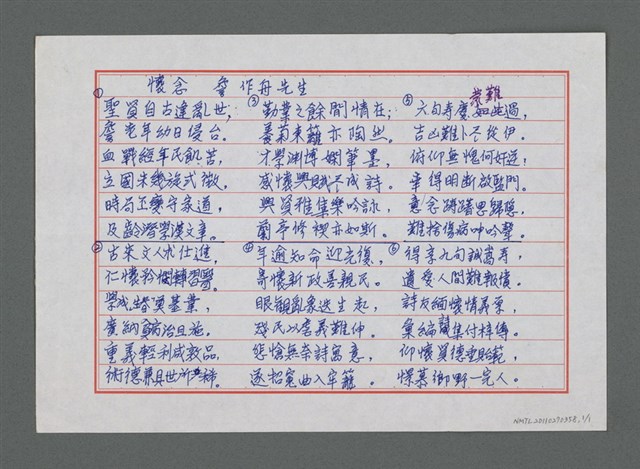 懷念 詹作舟先生
①
聖賢自古達亂世；
廖老年幼日侵台。
血戰經年民飢苦，
立國未幾旋式微，
時局丕變守家道，
及齡潛學漢文章。
②
古來文人求仕進，
仁懷矜憫轉習醫，
學成啓奠基業，
廣納貧治且施。
重義輕利成敦品，
術德兼具世所稱。
③
勤業之餘閒情在；
養菊東籬亦陶然。
才學淵博嫻筆墨，
感懷興賦不成詩。
興員雅集樂吟詠，
蘭亭修禊亦如斯。
④
年逾知命迎光復，
寄懷新政善親民。
眼觀亂象迭生起，
殘民以虐義難伸。
悲愴無奈詩寓意，
遂招冤曲入牢籠。
⑤
六旬壽慶蒙難如此過，
吉凶難卜不從伊。
俯仰無愧何好逆，
幸得明斷啟監門。
意念躊躇思歸隱，
難捨傷病呻吟聲。
⑥
得享九旬誠嵩壽，
遺愛人間難報償。
詩友緬懷情義深，
彙編集付梓傳。
仰懷賢德垂貽範，
懷慕鄉野一完人。
NMTL20110270358, 1/1